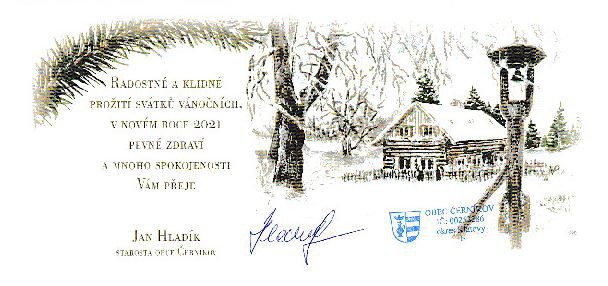 Radostné a klidné
prožití svátků vánočních,
v novém roce 2021
pevné zdraví
a mnoho spokojenosti
Vám přeje
Jan Hladík
starosta obce Černíkov
OBEC ČERNÍKOV
IČ:
okres Klatovy